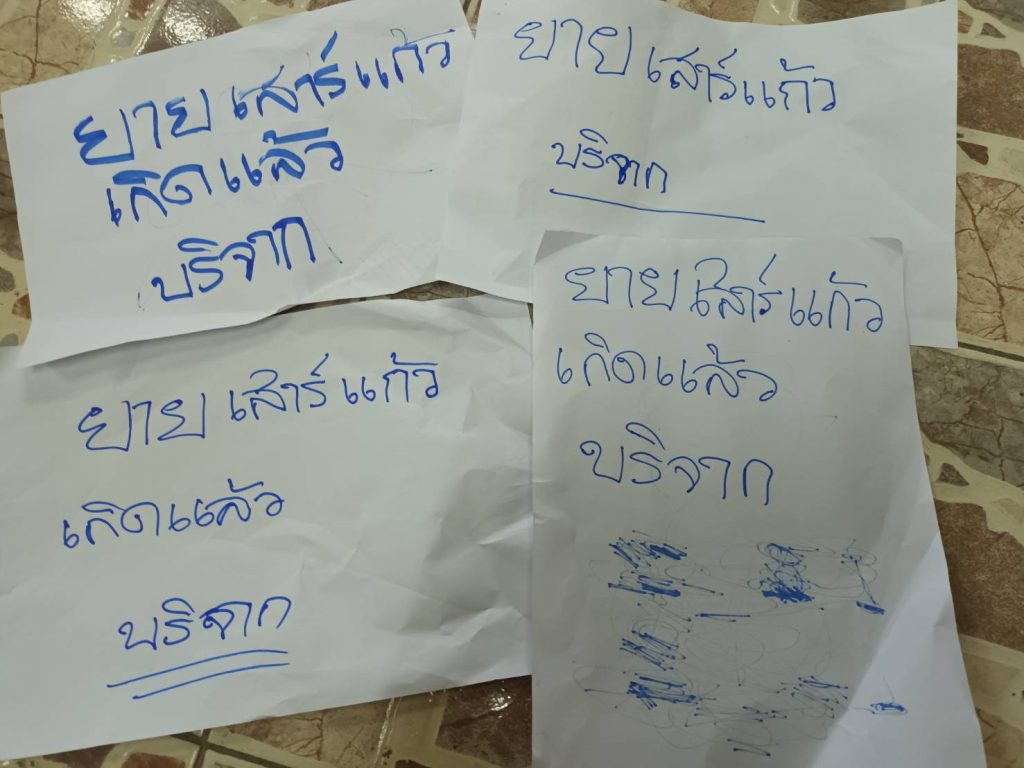 ยายเสาร์แก้ว
เกิดแล้ว
บริจาก
ยายเสาร์แก้ว
บริจาก
ยายเสาร์แก้ว
เกิดแล้ว
บริจาก
ยายเสาร์แก้ว
เกิดแล้ว
บริจาก